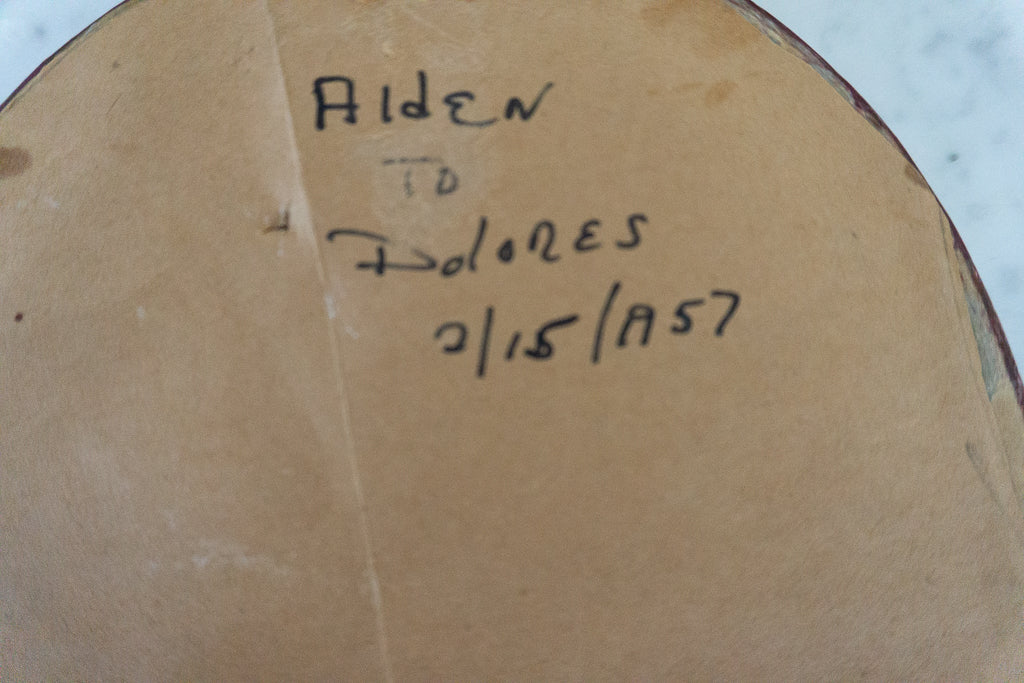 AldEN
TO
DolORES
2/15/A57